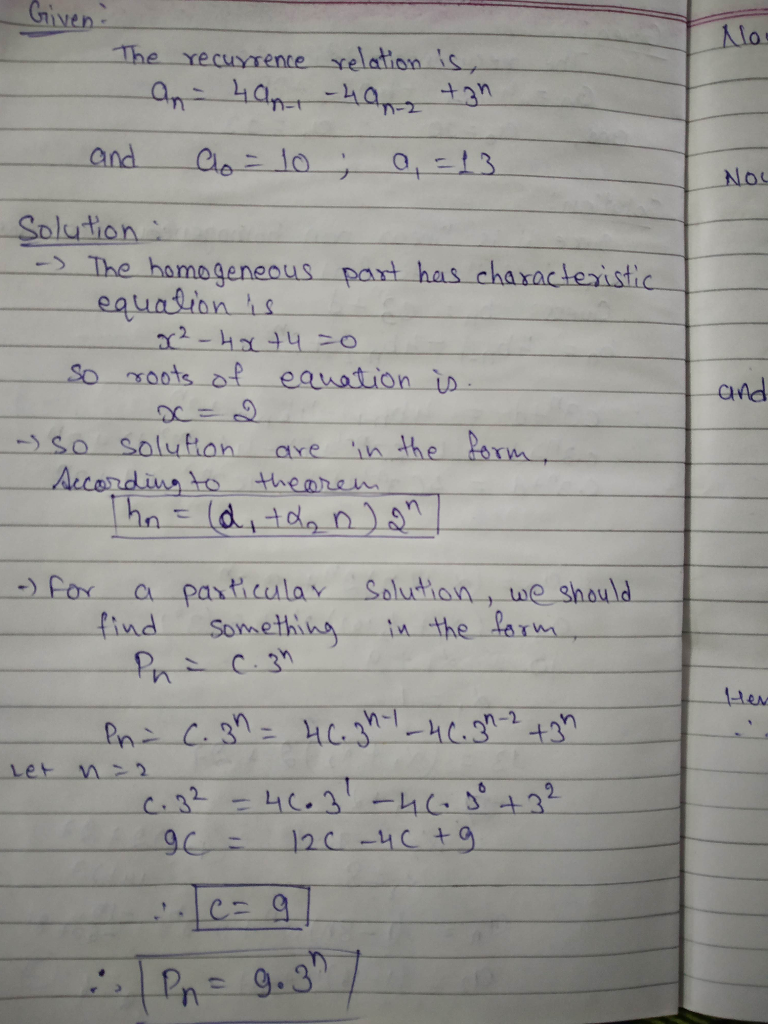 Given:
The recurrence relation is,
aₙ = 4aₙ₋₁ - 4aₙ₋₂ + 3ⁿ
and a₀ = 10 ; a₁ = 13
Solution :
-> The homogeneous part has characteristic
equation is
x² - 4x + 4 = 0
so roots of equation is.
x = 2
-> so solution are in the form,
According to theorem
hₙ = (α₁ + α₂ n) 2ⁿ
-> For a particular solution, we should
find something in the form,
Pₙ = C. 3ⁿ
Pₙ = C. 3ⁿ = 4C. 3ⁿ⁻¹ - 4C. 3ⁿ⁻² + 3ⁿ
Let n = 2
C. 3² = 4C. 3¹ - 4C. 3⁰ + 3²
9C = 12C - 4C + 9
∴ C = 9
∴ Pₙ = 9. 3ⁿ
and